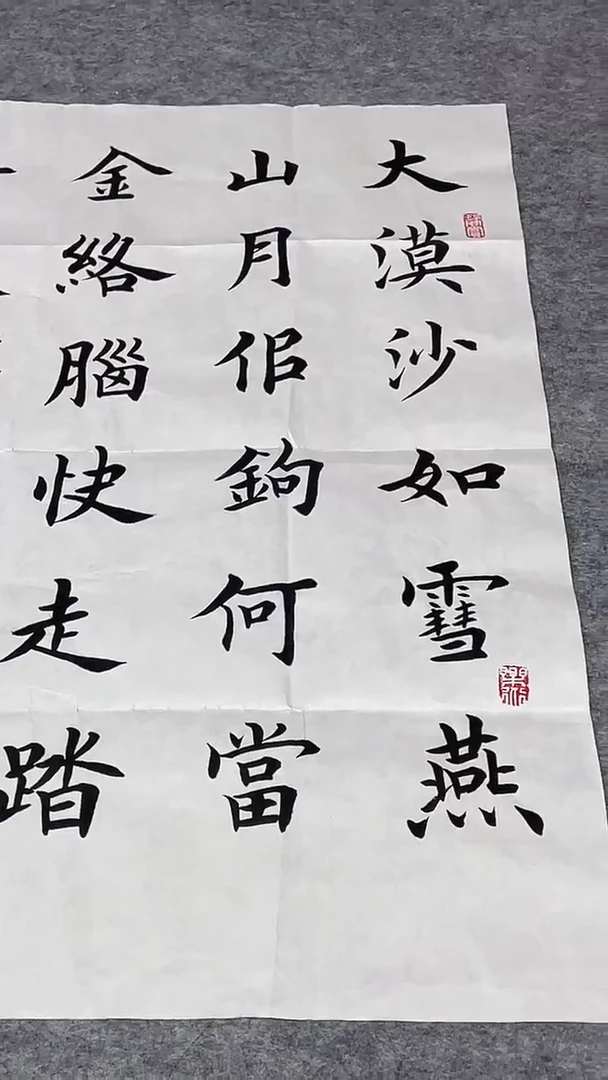 大漠沙如䨮燕
山月佀鉤何當
金絡腦快走踏